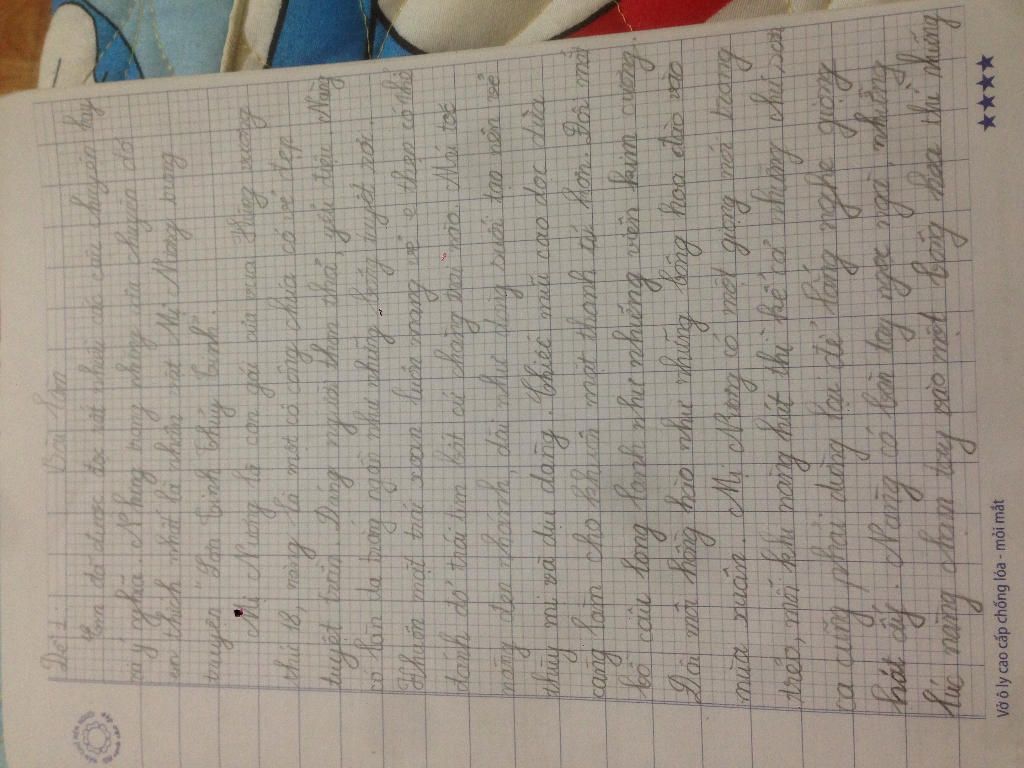 Đề 1: Bài làm
Em đã được đọc rất nhiều các câu chuyện hay
và ý nghĩa. Nhưng trong những câu chuyện đó
em thích nhất là nhân vật Mị Nương trong
truyện "Sơn Tinh Thủy Tinh".
Mị Nương là con gái của vua Hùng vương
thứ 18, nàng là một cô công chúa có vẻ đẹp
tuyệt trần. Dáng người thon thả, yểu điệu. Nàng
có làn da trắng ngần như những bông tuyết rơi.
Khuôn mặt trái xoan luôn mang vẻ e thẹn có thể
đánh đổ trái tim bất cứ chàng trai nào. Mái tóc
nàng đen nhánh, dài như dòng suối tạo nên vẻ
thùy mị và dịu dàng. Chiếc mũi cao dọc dừa
càng làm cho khuôn mặt thanh tú hơn. Đôi mắt
bồ câu long lanh như những viên kim cương.
Đôi má hồng hào như những bông hoa đào vào
mùa xuân. Mị Nương có một giọng mà trong
trẻo, mỗi khi nàng hát thì kể cả những chú sơn
ca cũng phải dừng lại để lắng nghe giọng
hát ấy. Nàng có bàn tay ngọc ngà, những
lúc nàng chạm tay vào một bông hoa thì những
Vở ô ly cao cấp chống lóa - mỏi mắt